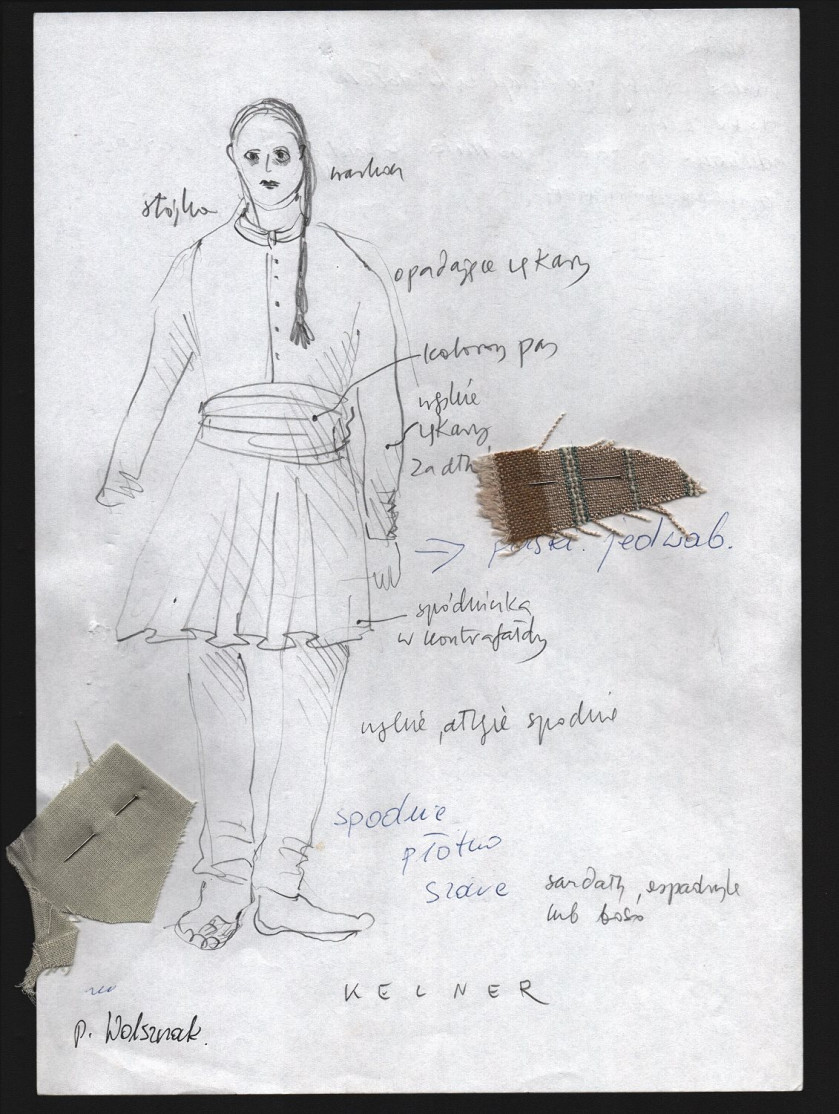 warkocz
stójka
opadające rękawy
kolorowy pas
wąskie
rękawy
za dłu
=> jedwab.
spódniczka
w kontrafałdy
wąskie, spodnie
spodnie
płótno
szare
sandały, espadryle
lub boso
KELNER
p. Wolsznak.